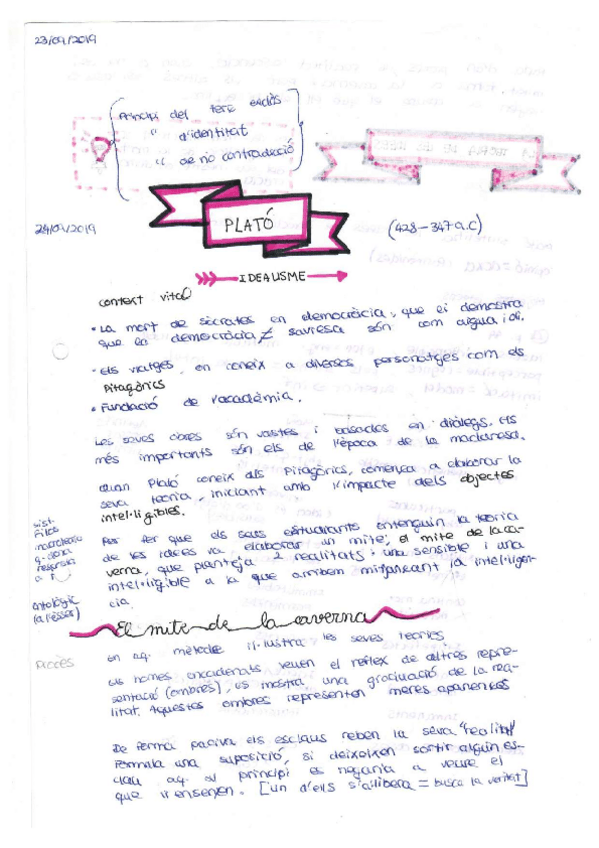 23/09/2019
Principi del terç exclòs
" d'identitat
" de no contradicció
24/09/2019
PLATÓ
(428-347 a.C)
IDEALISME
context vital
• La mort de Sòcrates en democràcia, que ei demostra
que la democràcia ≠ saviesa són com aigua i oli.
• Els viatges, en coneix a diversos personatges com els
Pitagòrics
• Fundació de l'acadèmia.
Les seves obres són vastes i basades en diàlegs. Els
més importants són els de l'època de la maduresa.
Quan Plató coneix als Pitagòrics, comença a elaborar la
seva teoria, iniciant amb l'impacte dels objectes
intel·ligibles.
Per fer que els seus estudiants entenguin la teoria
de les idees va elaborar un mite; el mite de la ca-
verna, que planteja 2 realitats: una sensible i una
intel·ligible a la que arribem mitjançant la intel·ligèn-
cia.
ontològic
(a l'ésser)
El mite de la caverna
en aq. mite de il·lustra les seves teories
Els homes encadenats veuen el reflex de altres repre-
sentació (ombres), es mostra una graduació de la rea-
litat. Aquestes ombres representen meres aparences
De forma passiva els esclaus reben la seva "realitat"
Formula una suposició, si deixeixen sortir algún es-
clau aq. al principi es negaria a veure el
que li ensenyen. [un d'ells s'allibera = busca la veritat]